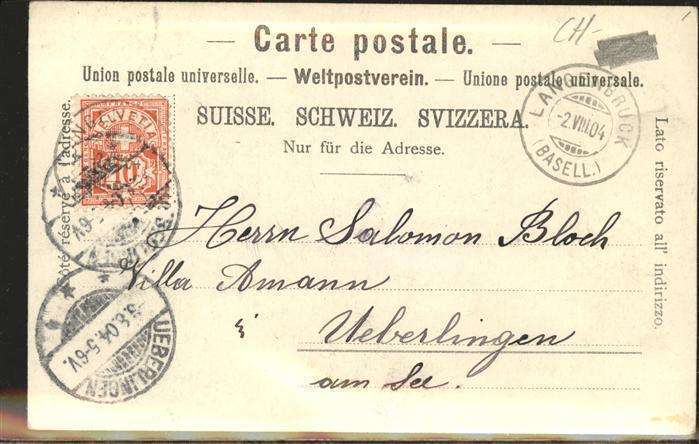 CH-
— Carte postale. —
Union postale universelle. — Weltpostverein. — Unione postale universale.
SUISSE. SCHWEIZ. SVIZZERA.
Nur für die Adresse.
Côté réservé à l'adresse.
Lato riservato all' indirizzo.
HELVETIA
10
LANGENBRUCK
-2.VIII.04
(BASELL.)
Herrn Salomon Bloch
Villa Amann
Ueberlingen
am See.
UEBERLINGEN
3.8.04.5-6V.